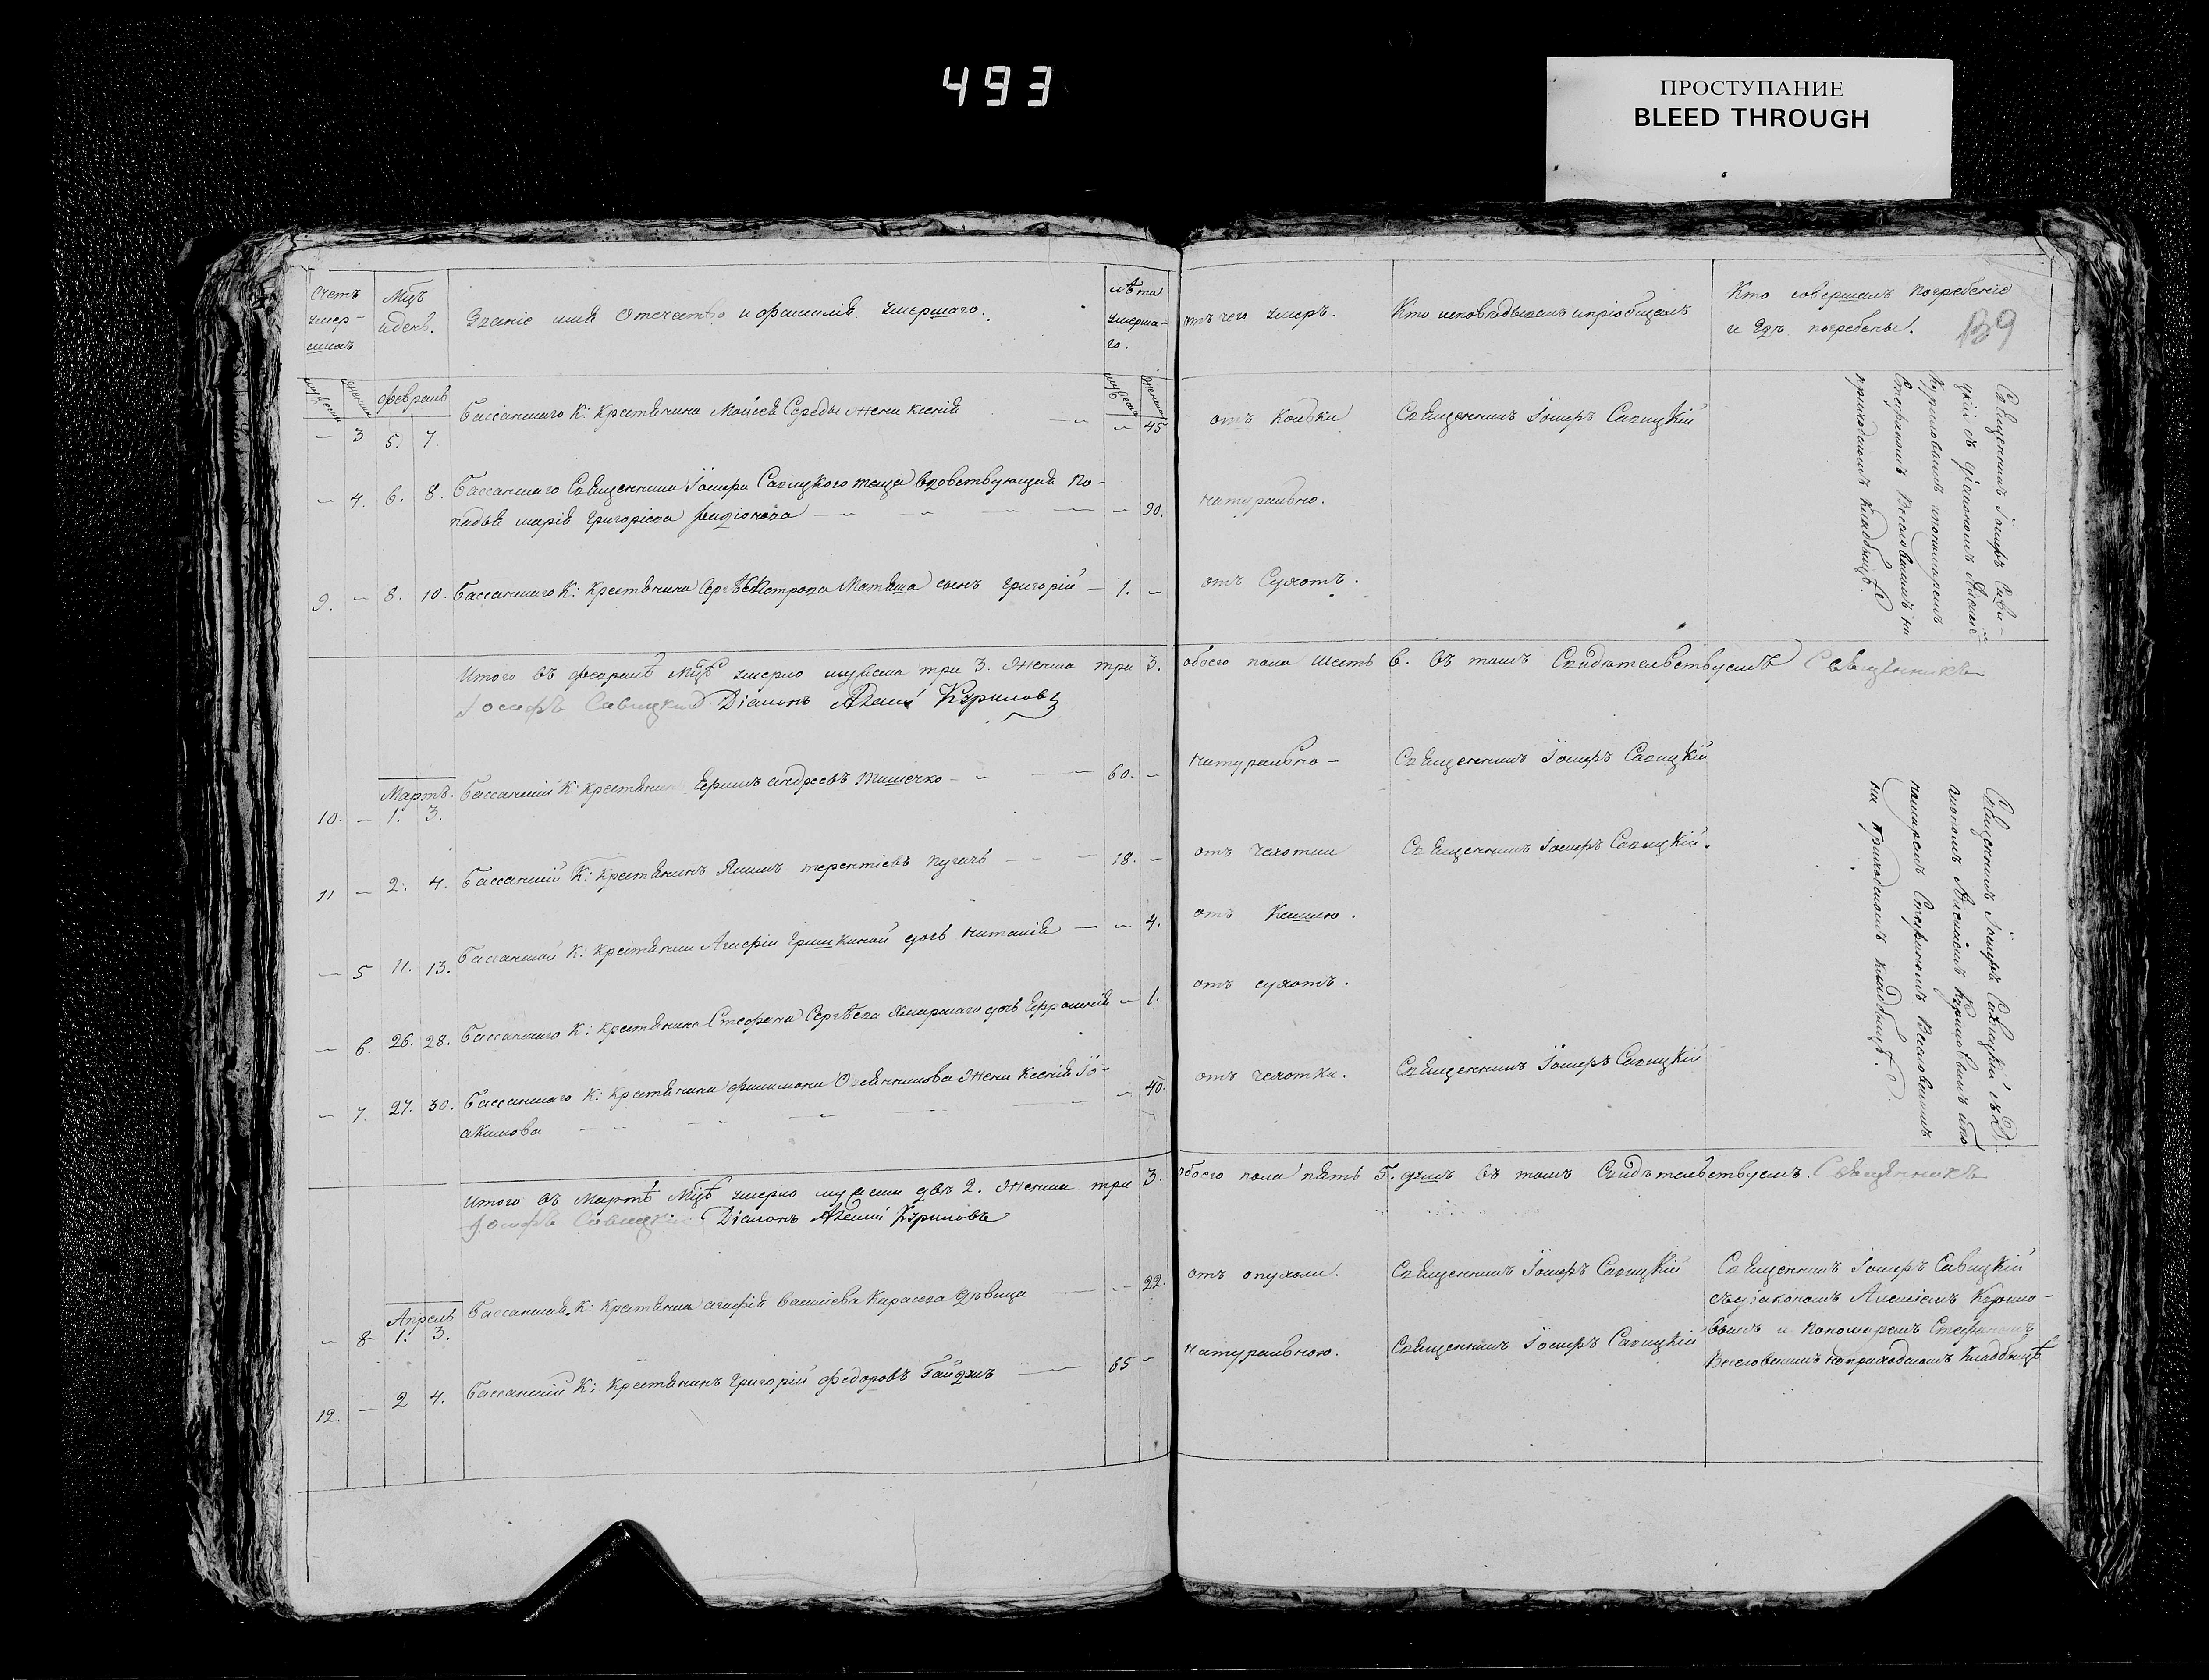 493
ПРОСТУПАНИЕ
BLEED THROUGH
Счетъ умершихъ
Мцъ и день.
Званіе имя Отечество и фамилія умершаго.
лѣта умерша-го.
отъ чего умеръ.
Кто исповѣдывалъ и пріобщалъ
Кто совершалъ погребеніе и гдѣ погребены.
139
Февраль
— 3 5. 7. Бассанскаго К: крестянина Моисея Середы жена Ксенія — 45 отъ Колѣки Священникъ Іосифъ Савицкій
— 4. 6. 8. Бассанскаго Священника Іосифа Савицкого теща вдовствующая по-
падья Марія Григоріева — 90. натурально.
9. — 8. 10. Бассанскаго К: крестянина сынъ Григорій — 1. — отъ Сухотъ.
Священникъ Іосифъ Сави-
цкій съ діакономъ Алексіе
Куриловымъ и пономаремъ
Стефаномъ Веселовскимъ на
приходскомъ кладбищѣ.
Итого въ февралѣ Мцѣ умерло мужеска три 3. Женска три 3. обоего пола шесть 6. въ томъ Свидѣтельствуемъ Священникъ
Іосифъ Савицкій Діаконъ Алексій Куриловъ
Мартъ.
10. — 1. 3. Бассанскій К: крестянинъ Ефимъ Андреевъ Тимечко — 60. — натурально — Священникъ Іосифъ Савицкій
11 — 2. 4. Бассанскій К: крестянинъ Якимъ Терентіевъ Пугачъ — 18. — отъ чехотки Священникъ Іосифъ Савицкій.
— 5 11. 13. Бассанской К: крестянки Агафіи Гришкиной дочь Наталія — 4. отъ Кашлю.
— 6. 26. 28. Бассанскаго К: крестянина Стефана Сергѣева дочь Ефросинія — 1. отъ сухотъ.
— 7. 27. 30. Бассанскаго К: крестянина Филимона Овсянникова Жена Ксенія Іо-
акимова — 40. отъ чехотки. Священникъ Іосифъ Савицкій
Священникъ Іосифъ Савицкій съ Ді
акономъ Алексіемъ Куриловымъ и по
намаремъ Стефаномъ Веселовскимъ
на приходскомъ кладбищѣ.
Итого въ Мартѣ Мцѣ умерло мужеска два 2. Женска три 3. обоего пола пять 5. душъ въ томъ Свидѣтельствуемъ. Священникъ
Іосифъ Савицкій Діаконъ Алексій Куриловъ
Апрель
— 8 1. 3. Бассанская К: крестянка Агафія Васильева Карасева дѣвица — 22. отъ опухоли. Священникъ Іосифъ Савицкій
12. — 2 4. Бассанскій К: крестянинъ Григорій Федоровъ Гайдукъ — 65 — натуральною. Священникъ Іосифъ Савицкій
Священникъ Іосифъ Савицкій
съ діакономъ Алексіемъ Курило-
вымъ и пономаремъ Стефаномъ
Веселовскимъ на приходскомъ кладбищѣ